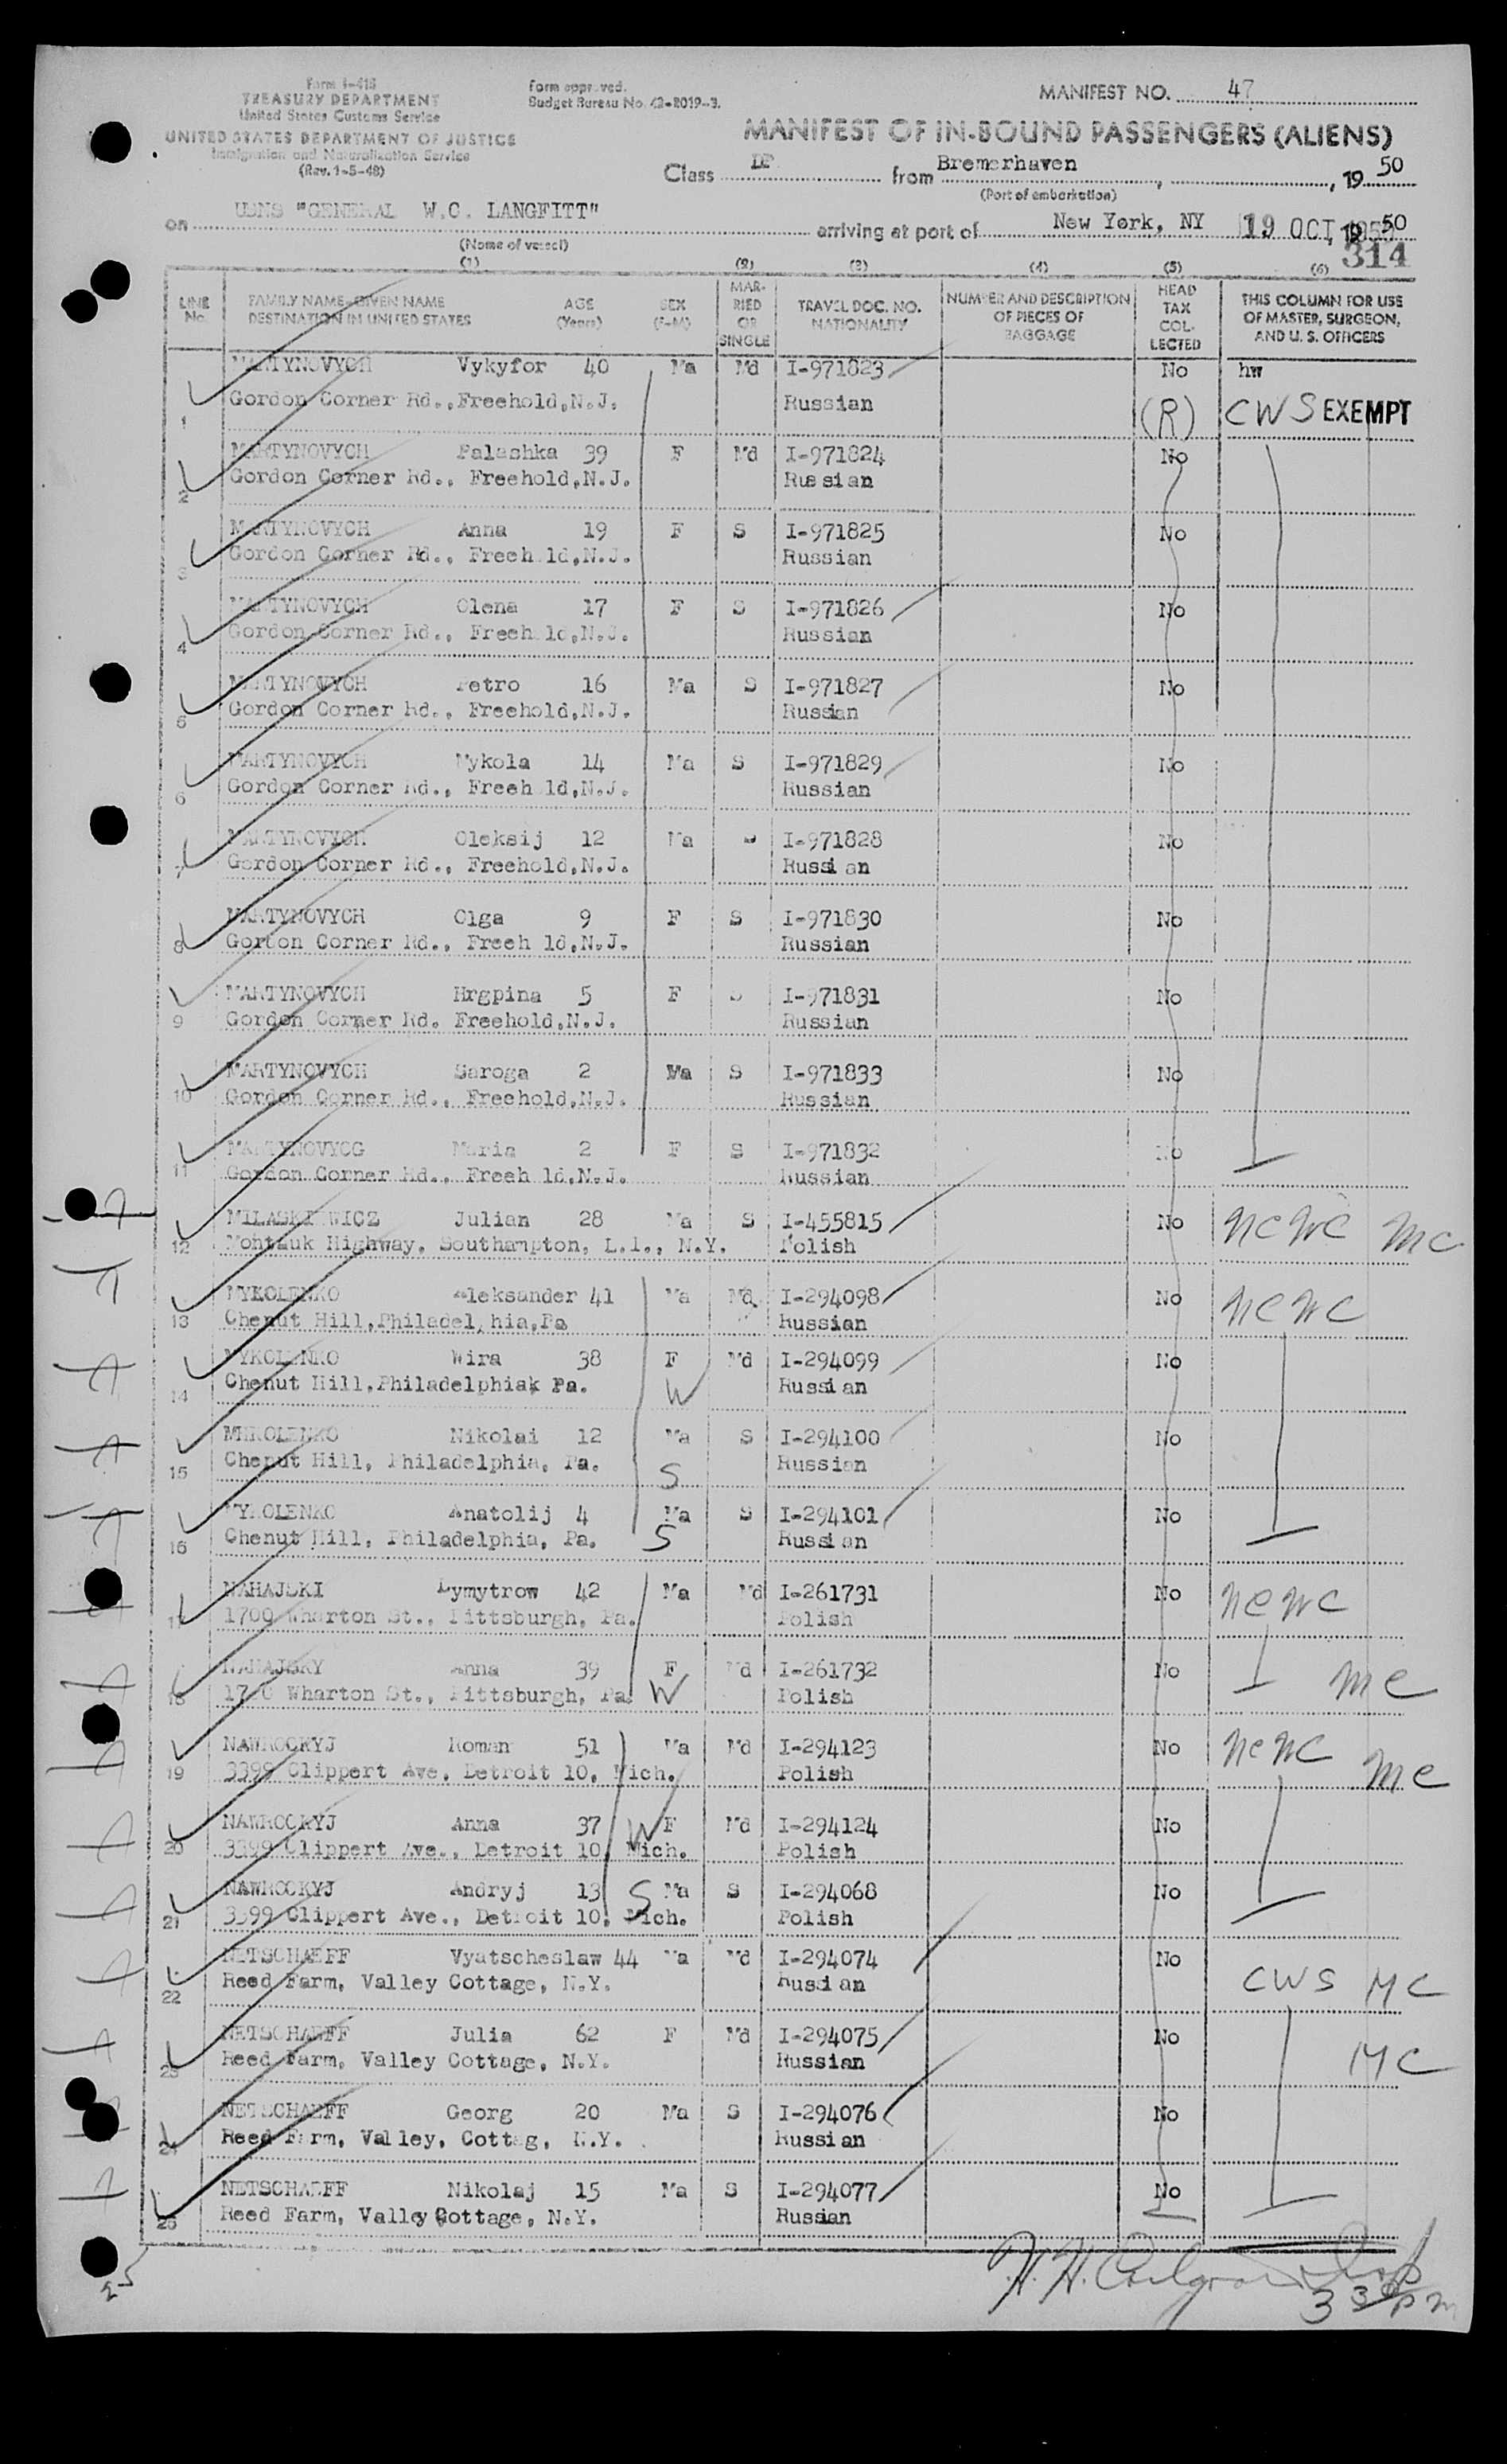 Form I-418
TREASURY DEPARTMENT
United States Customs Service
UNITED STATES DEPARTMENT OF JUSTICE
Immigration and Naturalization Service
(Rev. 1-5-48)
Form approved.
Budget Bureau No. 43-R019-3.
MANIFEST NO. 47
MANIFEST OF IN-BOUND PASSENGERS (ALIENS)
Class DP from Bremerhaven, , 19 50
(Port of embarkation)
on USNS "GENERAL W.C. LANGFITT" arriving at port of New York, NY 19 OCT 1950 , 19 50
(Name of vessel)
314
(1) (2) (3) (4) (5) (6)
LINE No. FAMILY NAME-GIVEN NAME DESTINATION IN UNITED STATES AGE (Years) SEX (F-M) MARRIED OR SINGLE TRAVEL DOC. NO. NATIONALITY NUMBER AND DESCRIPTION OF PIECES OF BAGGAGE HEAD TAX COLLECTED THIS COLUMN FOR USE OF MASTER, SURGEON, AND U. S. OFFICERS
MARTYNOVYCH Vykyfor 40 Ma Md I-971823 No hw
1 Gordon Corner Rd.,Freehold,N.J. Russian (R) CWS EXEMPT
MARTYNOVYCH Palashka 39 F Md I-971824 No
2 Gordon Corner Rd., Freehold,N.J. Russian
MARTYNOVYCH Anna 19 F S I-971825 No
3 Gordon Corner Rd., Freeh ld,N.J. Russian
MARTYNOVYCH Olena 17 F S I-971826 No
4 Gordon Corner Rd., Freeh ld,N.J. Russian
MARTYNOVYCH Petro 16 Ma S I-971827 No
5 Gordon Corner Rd., Freehold,N.J. Russian
MARTYNOVYCH Mykola 14 Ma S I-971829 No
6 Gordon Corner Rd., Freeh ld,N.J. Russian
MARTYNOVYCH Oleksij 12 Ma S I-971828 No
7 Gordon Corner Rd., Freehold,N.J. Russi an
MARTYNOVYCH Olga 9 F S I-971830 No
8 Gordon Corner Rd., Freeh ld,N.J. Russian
MARTYNOVYCH Hrgpina 5 F S I-971831 No
9 Gordon Corner Rd. Freehold,N.J. Russian
MARTYNOVYCH Saroga 2 Ma S I-971833 No
10 Gordon Corner Rd., Freehold,N.J. Russian
MARTYNOVYCG Maria 2 F S I-971832 No
11 Gordon Corner Rd., Freeh ld,N.J. Russian
MILASKI WICZ Julian 28 Ma S I-455815 No NCWC MC
12 Montauk Highway, Southampton, L.I., N.Y. Polish
MYKOLENKO Aleksander 41 Ma Md I-294098 No NCWC
13 Chenut Hill,Philadel hia,Pa Russian
MYKOLENKO Wira 38 F Md I-294099 No
14 Chenut Hill,Philadelphia, Pa. W Russi an
MYKOLENKO Nikolai 12 Ma S I-294100 No
15 Chenut Hill, Philadelphia, Pa. S Russian
MYKOLENKO Anatolij 4 Ma S I-294101 No
16 Chenut Hill, Philadelphia, Pa. S Russi an
NAHAJSKI Dymytrow 42 Ma Md I-261731 No NCWC
17 1700 Wharton St., Pittsburgh, Pa. Polish
NAHAJSKY Anna 39 F Md I-261732 No
18 1700 Wharton St., Pittsburgh, Pa. W Polish MC
NAWROCKYJ Roman 51 Ma Md I-294123 No NCWC
19 3399 Clippert Ave, Detroit 10, Mich. Polish MC
NAWROCKYJ Anna 37 W F Md I-294124 No
20 3399 Clippert Ave., Detroit 10, Mich. Polish
NAWROCKYJ Andryj 13 S Ma S I-294068 No
21 3399 Clippert Ave., Detroit 10, Mich. Polish
NETSCHAEFF Vyatscheslaw 44 Ma Md I-294074 No
22 Reed Farm, Valley Cottage, N.Y. Russi an CWS MC
NETSCHAEFF Julia 62 F Md I-294075 No
23 Reed Farm, Valley Cottage, N.Y. Russian MC
NETSCHAEFF Georg 20 Ma S I-294076 No
24 Reed Farm, Valley, Cottag, N.Y. Russian
NETSCHAEFF Nikolaj 15 Ma S I-294077 No
25 Reed Farm, Valley Cottage, N.Y. Russian
25
H. H.
3 30 pm